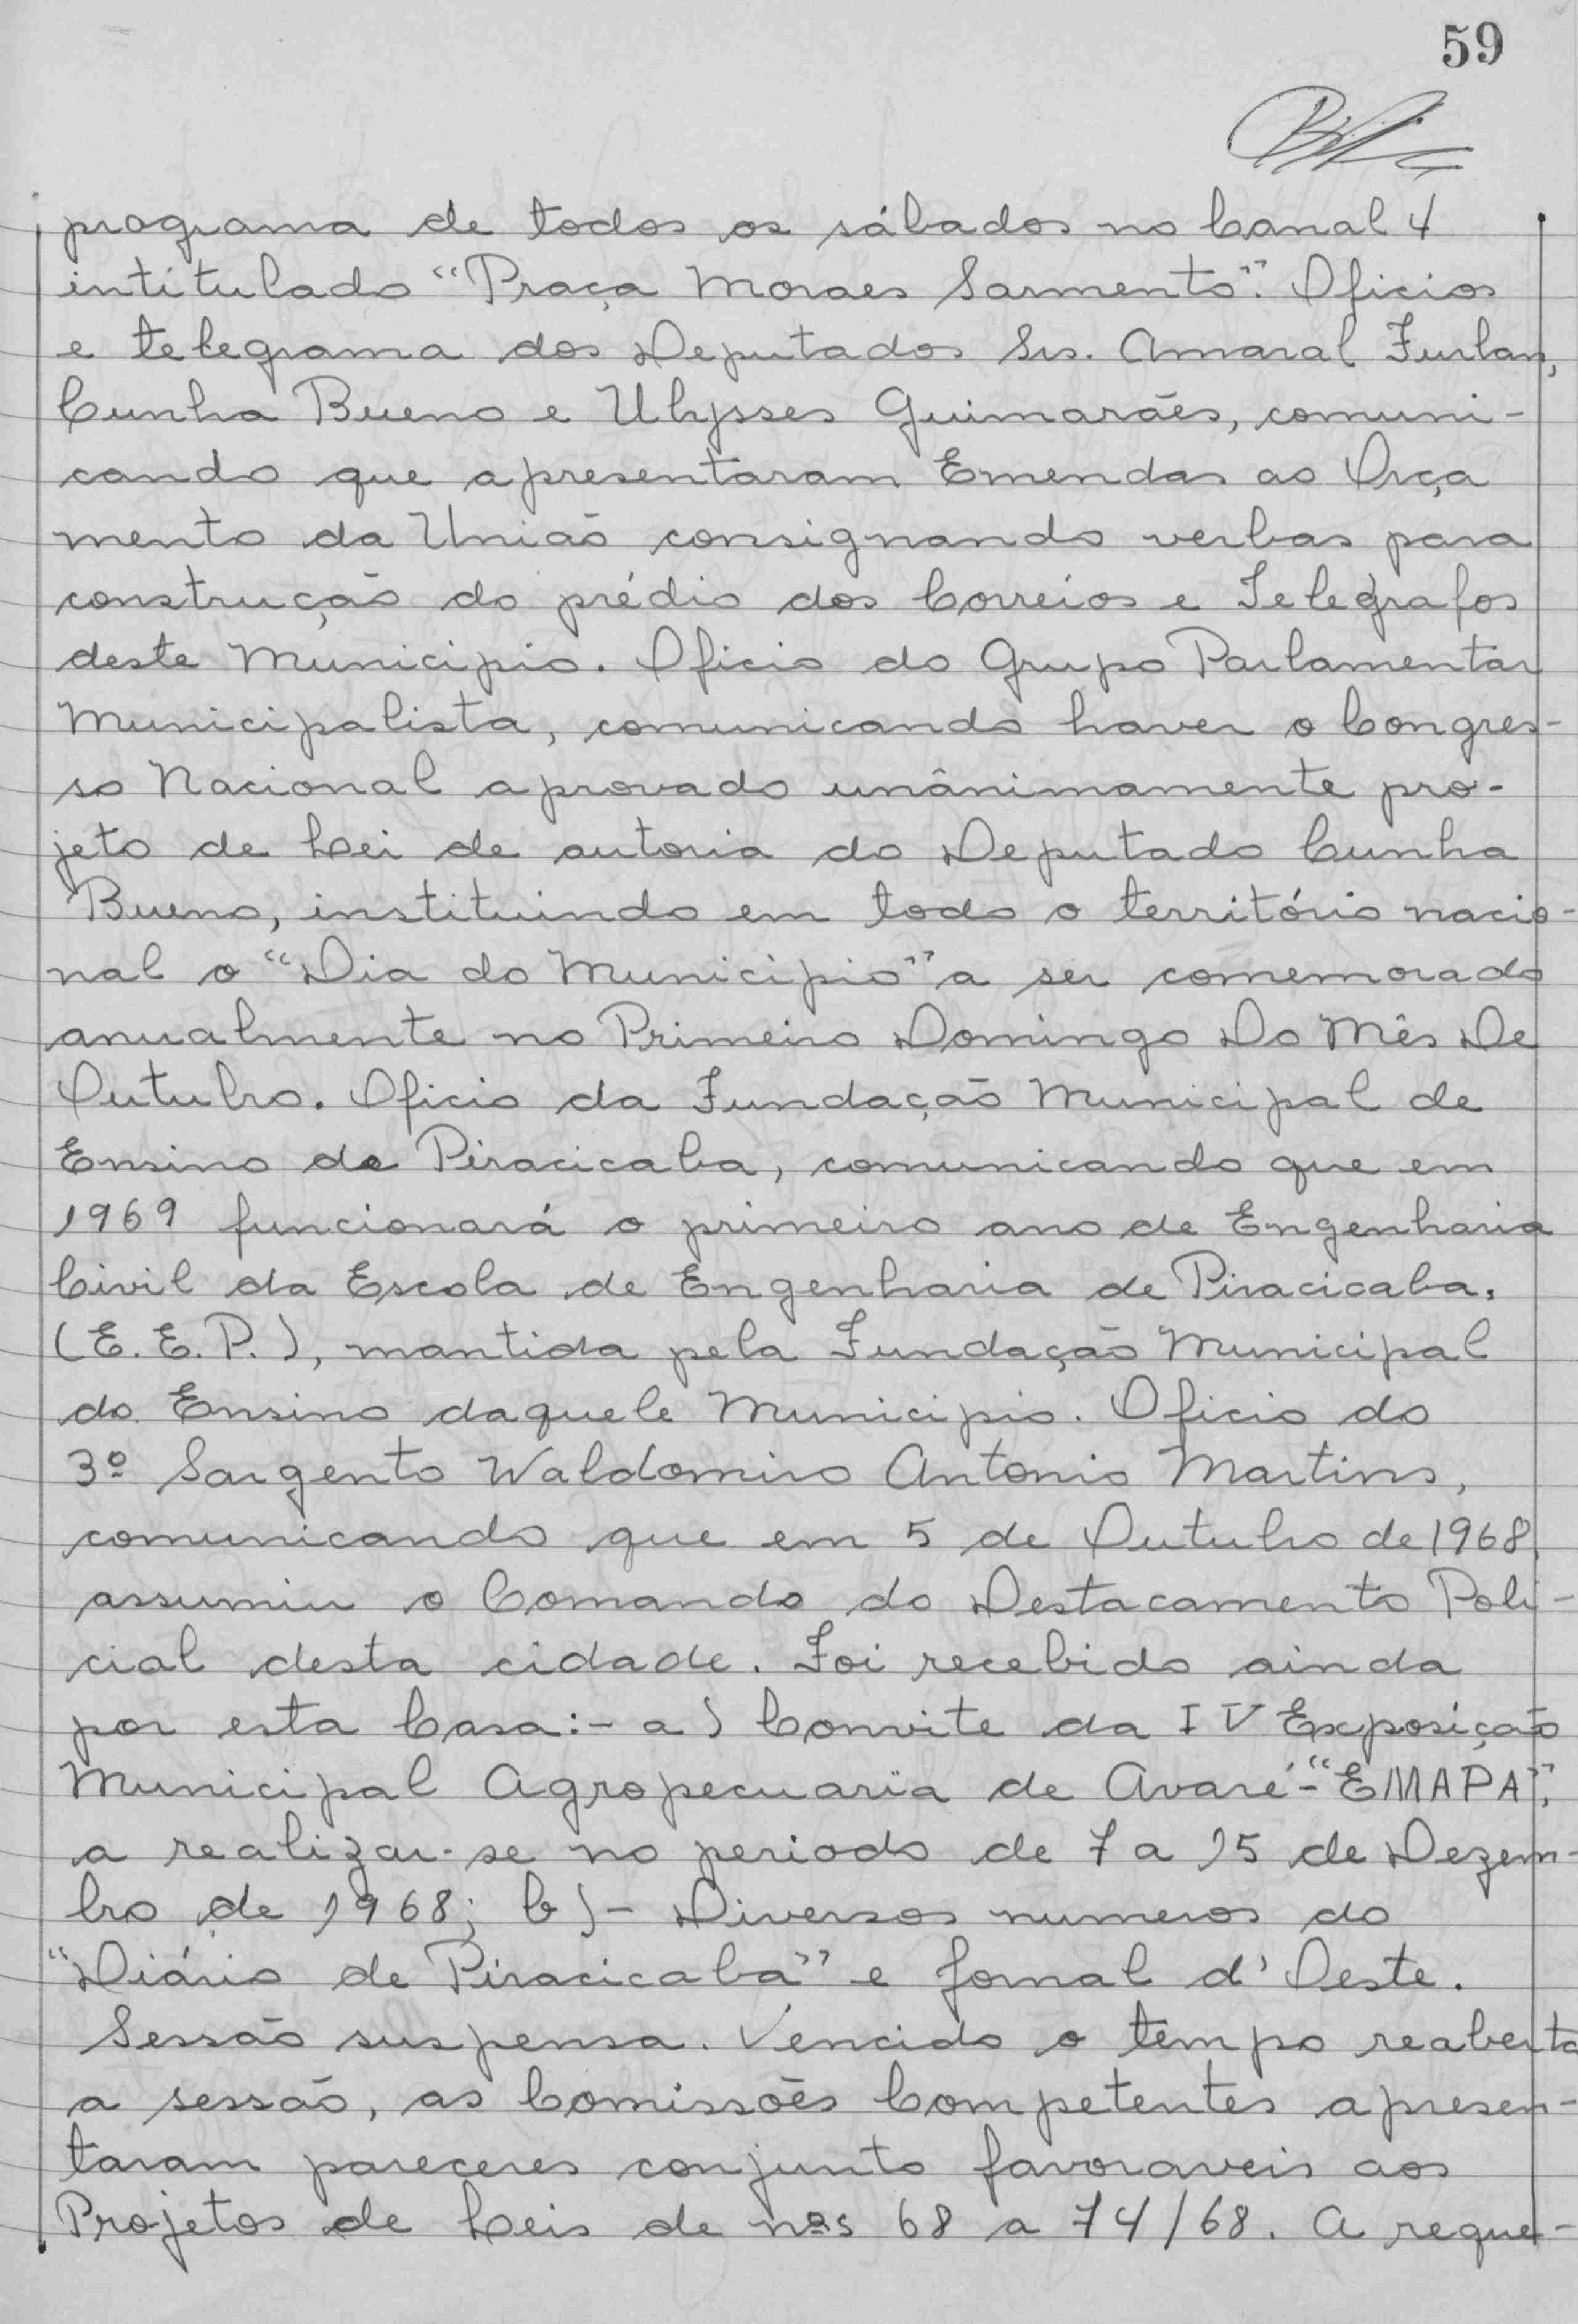 59
programa de todos os sábados no Canal 4
intitulado "Praça Moraes Sarmento". Oficios
e telegrama dos Deputados Srs. Amaral Furlan,
Cunha Bueno e Ulysses Guimarães, comuni-
cando que apresentaram Emendas ao Orça
mento da União consignando verbas para
construção do prédio dos Correios e Telegrafos
deste Municipio. Oficio do Grupo Parlamentar
Municipalista, comunicando haver o Congres-
so Nacional aprovado unânimamente pro-
jeto de Lei de autoria do Deputado Cunha
Bueno, instituindo em todo o território nacio-
nal o "Dia do Municipio" a ser comemorado
anualmente no Primeiro Domingo Do Mês De
Outubro. Oficio da Fundação Municipal de
Ensino de Piracicaba, comunicando que em
1969 funcionará o primeiro ano de Engenharia
Civil da Escola de Engenharia de Piracicaba,
(E. E. P.), mantida pela Fundação Municipal
do Ensino daquele Municipio. Oficio do
3º Sargento Waldomiro Antonio Martins,
comunicando que em 5 de Outubro de 1968,
assumiu o Comando do Destacamento Poli-
cial desta cidade. Foi recebido ainda
por esta Casa:- a) Convite da IV Exposição
Municipal Agropecuaria de Avaré-"EMAPA",
a realizar-se no periodo de 7 a 15 de Dezem-
bro de 1968; b)- Diversos numeros do
"Diário de Piracicaba" e Jornal d'Oeste.
Sessão suspensa. Vencido o tempo reaberta
a sessão, as Comissões Competentes apresen-
taram pareceres conjunto favoraveis aos
Projetos de Leis de nºs 68 a 74/68. A reque-